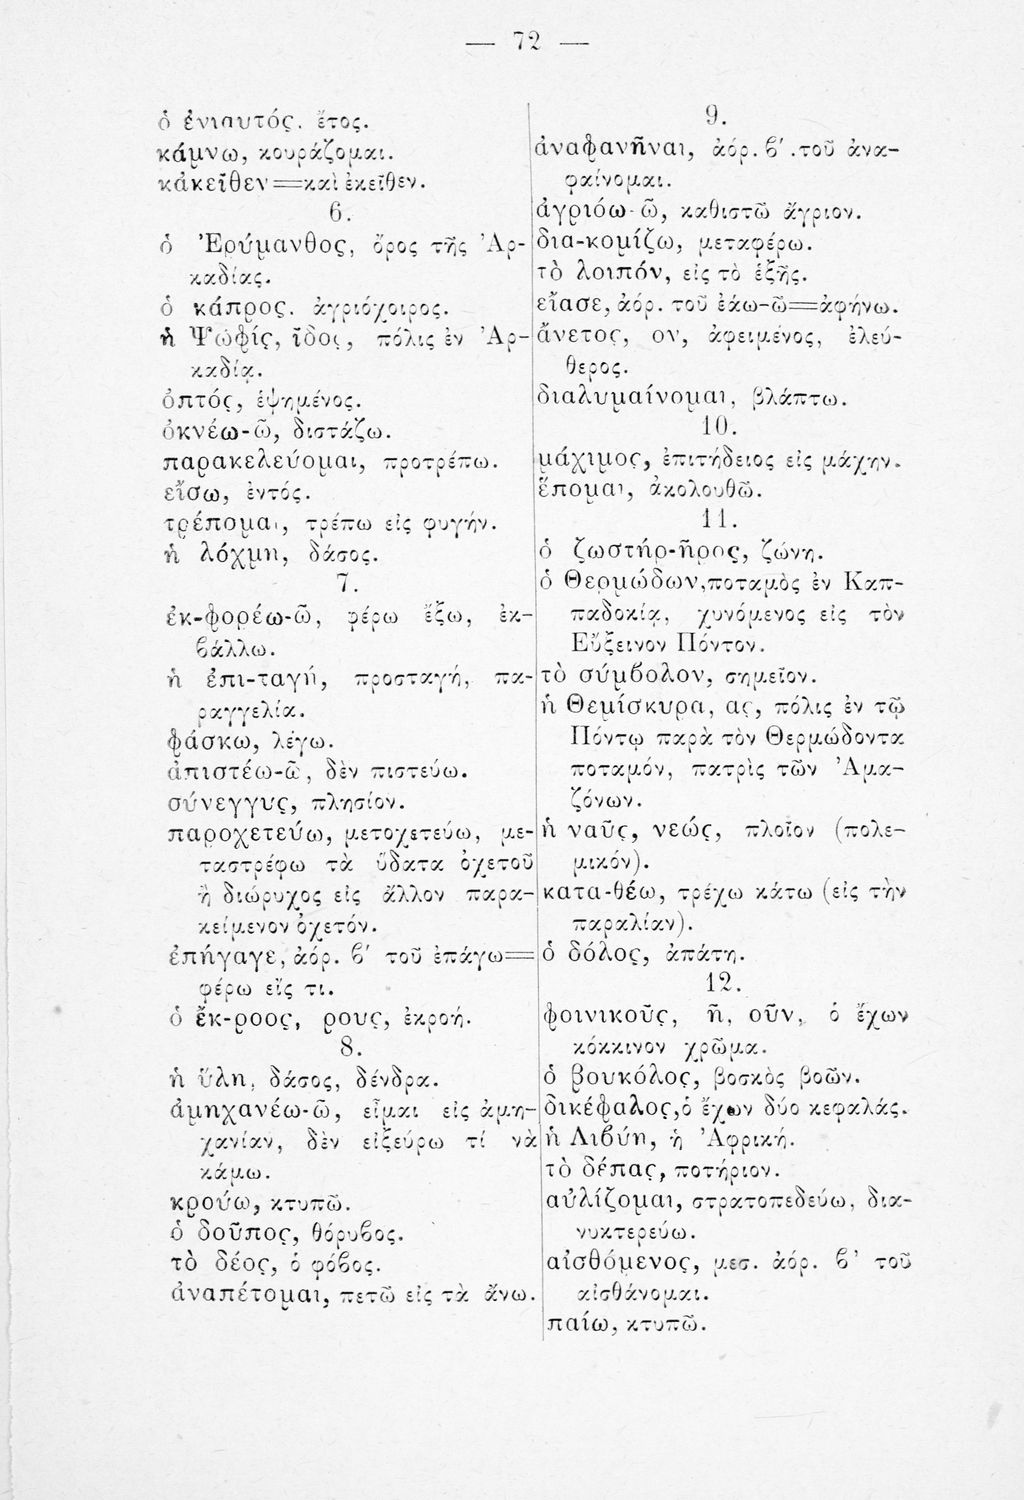 — 72 —
ὁ ἐνιαυτός. ἔτος.
κάμνω, κουράζομαι.
κἀκεῖθεν=καὶ ἐκεῖθεν.
6.
ὁ Ἐρύμανθος, ὄρος τῆς Ἀρ-
καδίας.
ὁ κάπρος. ἀγριόχοιρος.
ἡ Ψωφίς, ῖδος, πόλις ἐν Ἀρ-
καδίᾳ.
ὀπτός, ἑψημένος.
ὀκνέω-ῶ, διστάζω.
παρακελεύομαι, προτρέπω.
εἴσω, ἐντός.
τρέπομαι, τρέπω εἰς φυγήν.
ἡ λόχμη, δάσος.
7.
ἐκ-φορέω-ῶ, φέρω ἔξω, ἐκ-
βάλλω.
ἡ ἐπι-ταγή, προσταγή, πα-
ραγγελία.
φάσκω, λέγω.
ἀπιστέω-ῶ, δὲν πιστεύω.
σύνεγγυς, πλησίον.
παροχετεύω, μετοχετεύω, με-
ταστρέφω τὰ ὕδατα ὀχετοῦ
ἢ διώρυχος εἰς ἄλλον παρα-
κείμενον ὀχετόν.
ἐπήγαγε, ἀόρ. β′ τοῦ ἐπάγω=
φέρω εἴς τι.
ὁ ἔκ-ροος, ρους, ἐκροή.
8.
ἡ ὕλη, δάσος, δένδρα.
ἀμηχανέω-ῶ, εἶμαι εἰς ἀμη-
χανίαν, δὲν εἰξεύρω τί νὰ
κάμω.
κρούω, κτυπῶ.
ὁ δοῦπος, θόρυβος.
τὸ δέος, ὁ φόβος.
ἀναπέτομαι, πετῶ εἰς τὰ ἄνω.
9.
ἀναφανῆναι, ἀόρ. β′.τοῦ ἀνα-
φαίνομαι.
ἀγριόω-ῶ, καθιστῶ ἄγριον.
δια-κομίζω, μεταφέρω.
τὸ λοιπόν, εἰς τὸ ἑξῆς.
εἴασε, ἀόρ. τοῦ ἐάω-ῶ=ἀφήνω.
ἄνετος, ον, ἀφειμένος, ἐλεύ-
θερος.
διαλυμαίνομαι, βλάπτω.
10.
μάχιμος, ἐπιτήδειος εἰς μάχην.
ἕπομαι, ἀκολουθῶ.
11.
ὁ ζωστήρ-ῆρος, ζώνη.
ὁ Θερμώδων,ποταμὸς ἐν Καπ-
παδοκίᾳ, χυνόμενος εἰς τὸν
Εὔξεινον Πόντον.
τὸ σύμβολον, σημεῖον.
ἡ Θεμίσκυρα, ας, πόλις ἐν τῷ
Πόντῳ παρὰ τὸν Θερμώδοντα
ποταμόν, πατρὶς τῶν Ἀμα-
ζόνων.
ἡ ναῦς, νεώς, πλοῖον (πολε-
μικόν).
κατα-θέω, τρέχω κάτω (εἰς τὴν
παραλίαν).
ὁ δόλος, ἀπάτη.
12.
φοινικοῦς, ῆ, οῦν, ὁ ἔχων
κόκκινον χρῶμα.
ὁ βουκόλος, βοσκὸς βοῶν.
δικέφαλος,ὁ ἔχων δύο κεφαλάς.
ἡ Λιβύη, ἡ Ἀφρική.
τὸ δέπας, ποτήριον.
αὐλίζομαι, στρατοπεδεύω, δια-
νυκτερεύω.
αἰσθόμενος, μεσ. ἀόρ. β′ τοῦ
αἰσθάνομαι.
παίω, κτυπῶ.